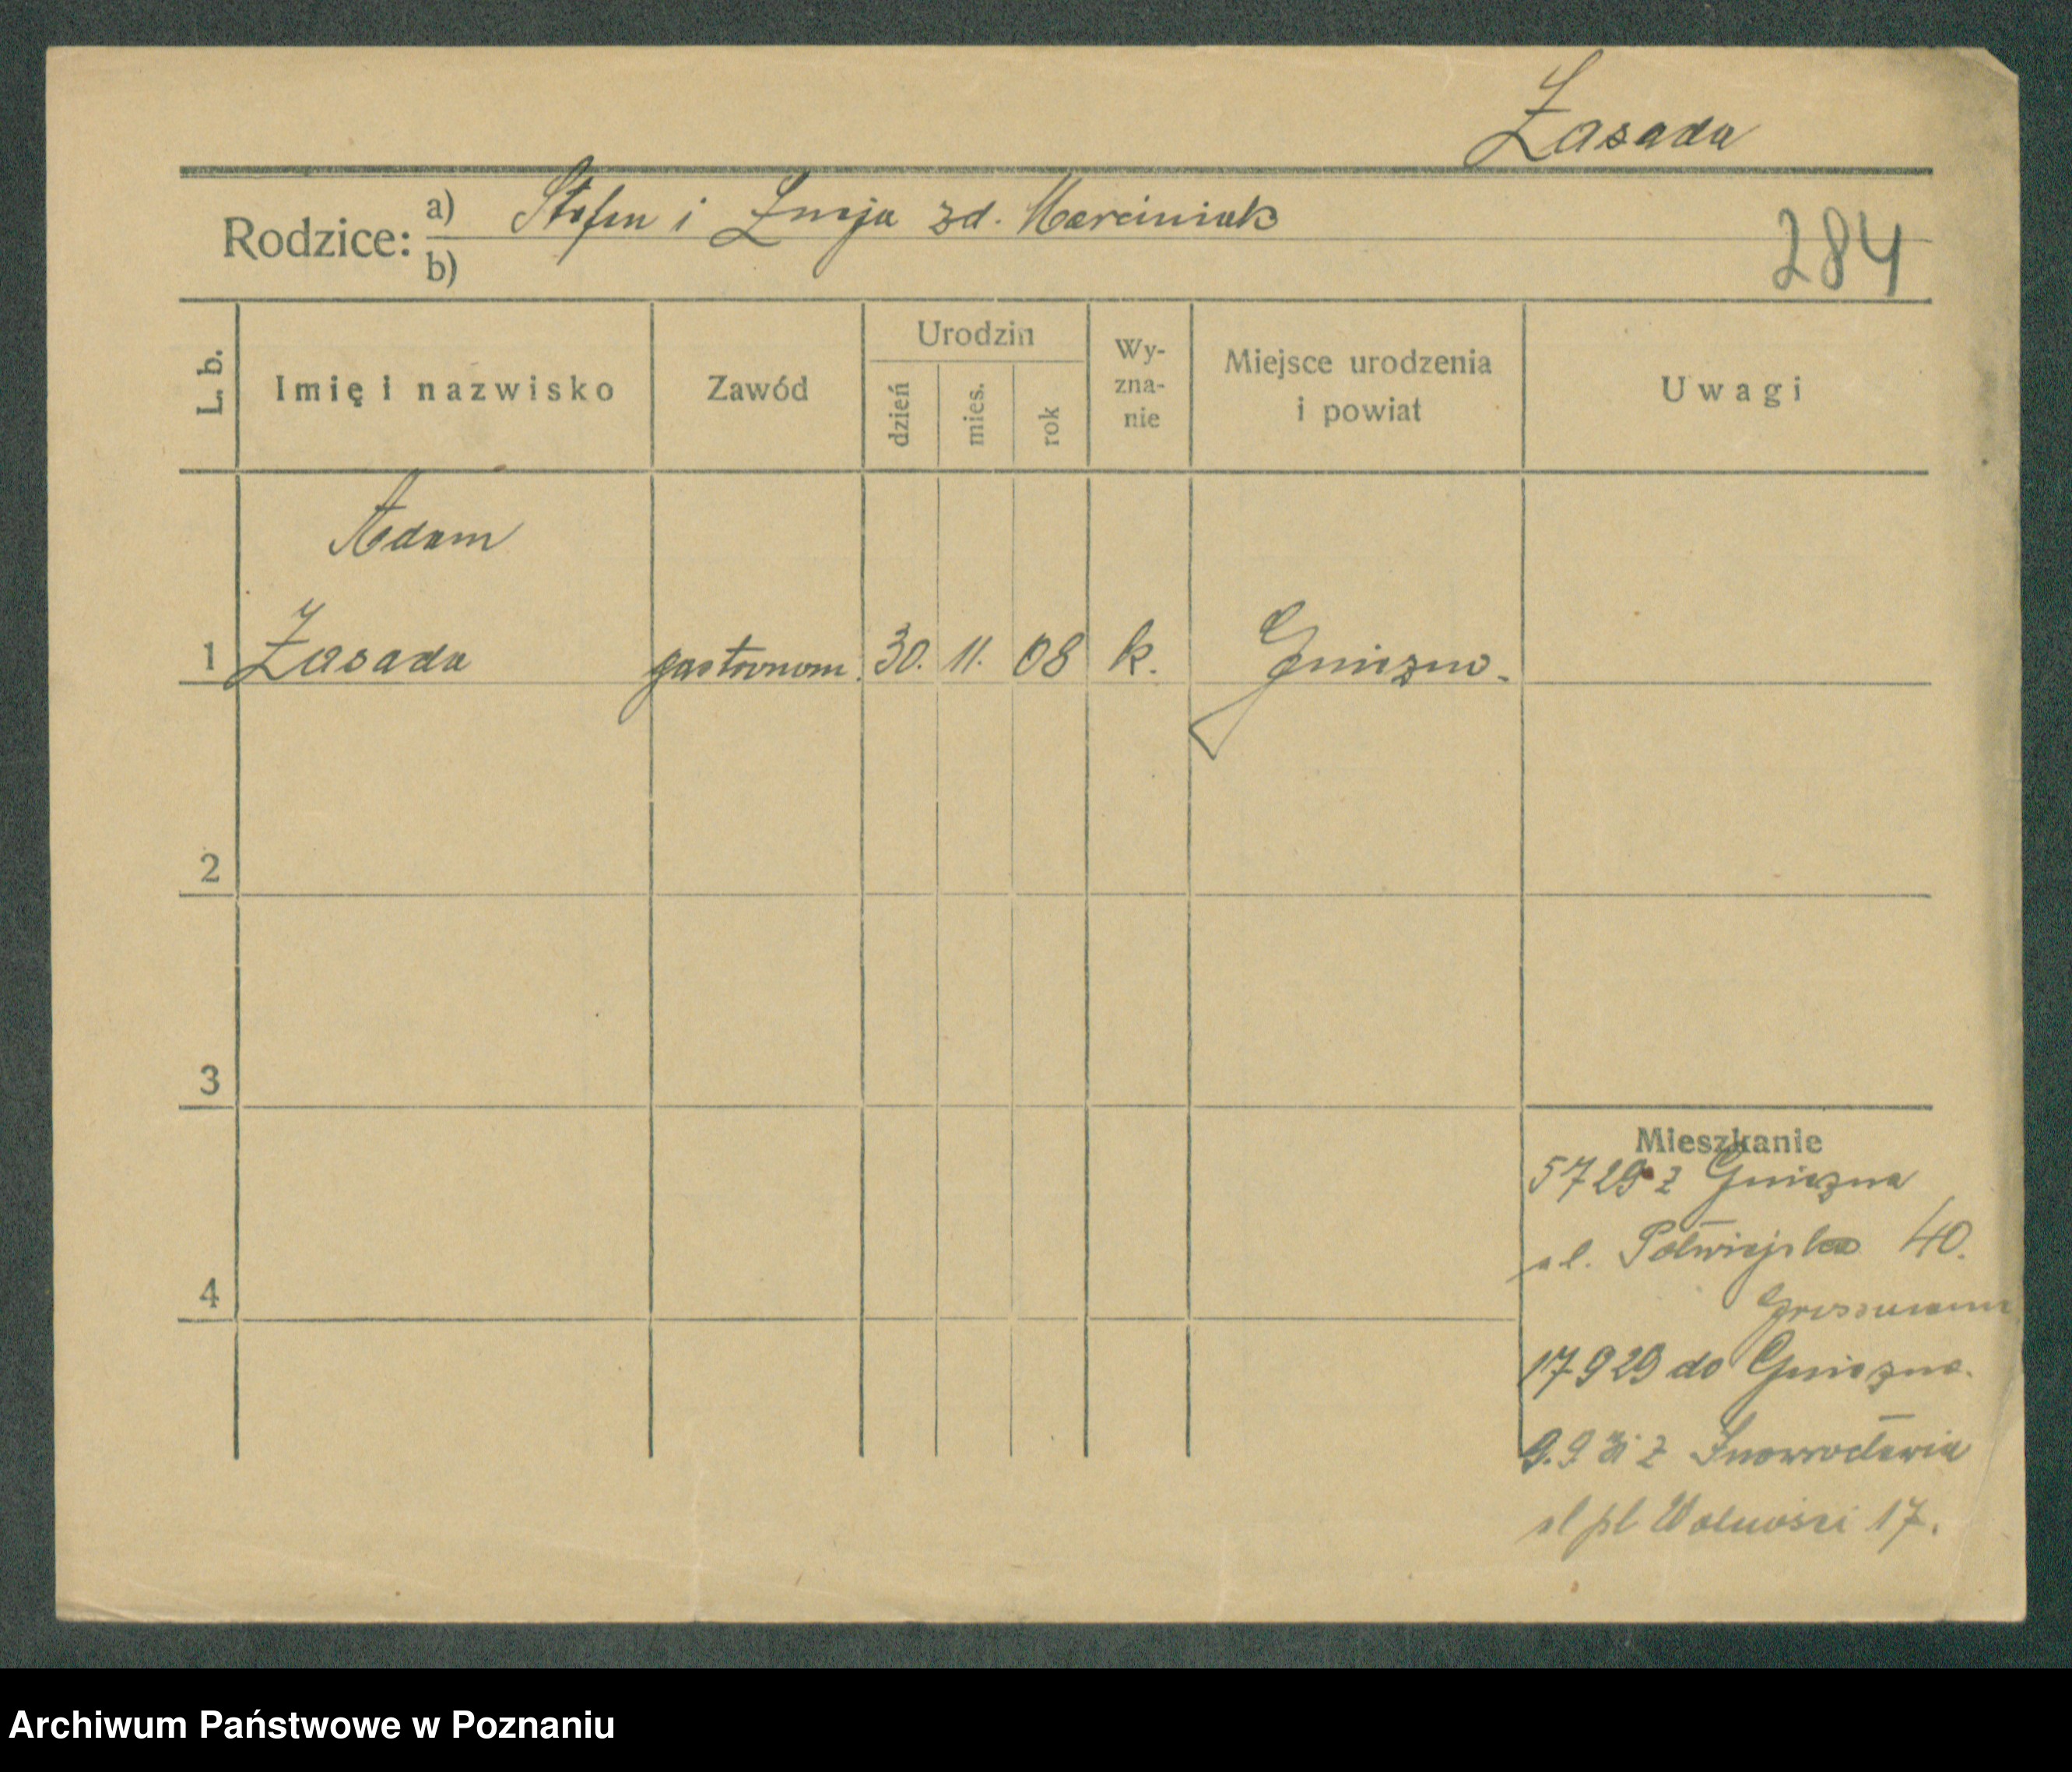 Zasada
Rodzice: a) Stefan i Łucja zd. Marciniak
b)
284
L. b. Imię i nazwisko Zawód Urodzin dzień mies. rok Wy-zna-nie Miejsce urodzenia i powiat Uwagi
Adam
1 Zasada gastronom. 30. 11. 08 k. Gniezno.
2
3
Mieszkanie
5 7 29 z Gniezna
ul. Półwiejska 40.
4
17 9 29 do Gniezna.
9. 9 31 z Inowrocławia
ul pl Wolności 17.
Archiwum Państwowe w Poznaniu